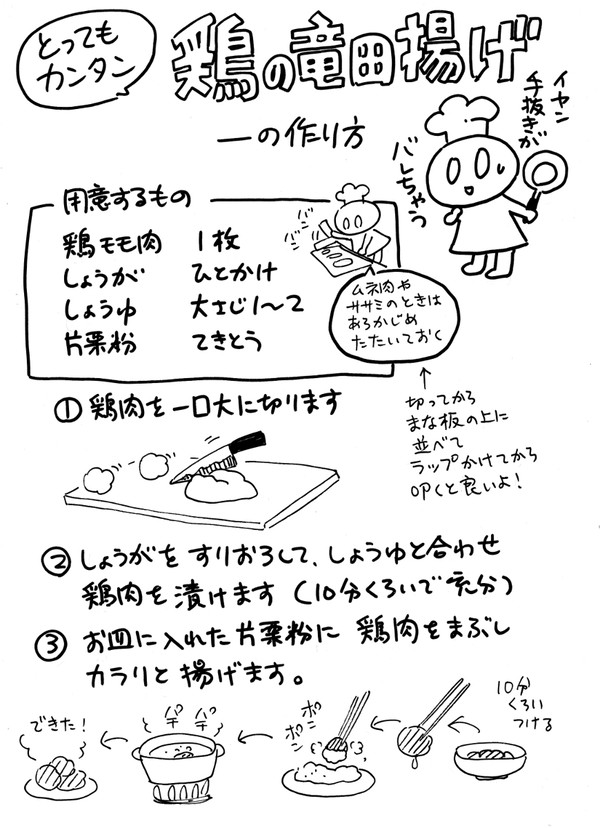 とっても
カンタン
鶏の竜田揚げ
ーの作り方
イヤン
手抜きが
バレちゃう
用意するもの
鶏モモ肉 1枚
しょうが ひとかけ
しょうゆ 大さじ1〜2
片栗粉 てきとう
バン
バン
ムネ肉や
ササミのときは
あらかじめ
たたいておく
↑
切ってから
まな板の上に
並べて
ラップかけてから
叩くと良いよ!
① 鶏肉を一口大に切ります
② しょうがをすりおろして、しょうゆと合わせ
鶏肉を漬けます(10分くらいで充分)
③ お皿に入れた片栗粉に 鶏肉をまぶし
カラリと揚げます。
10分
くらい
つける
ポン
ポン
パチ
パチ
できた!